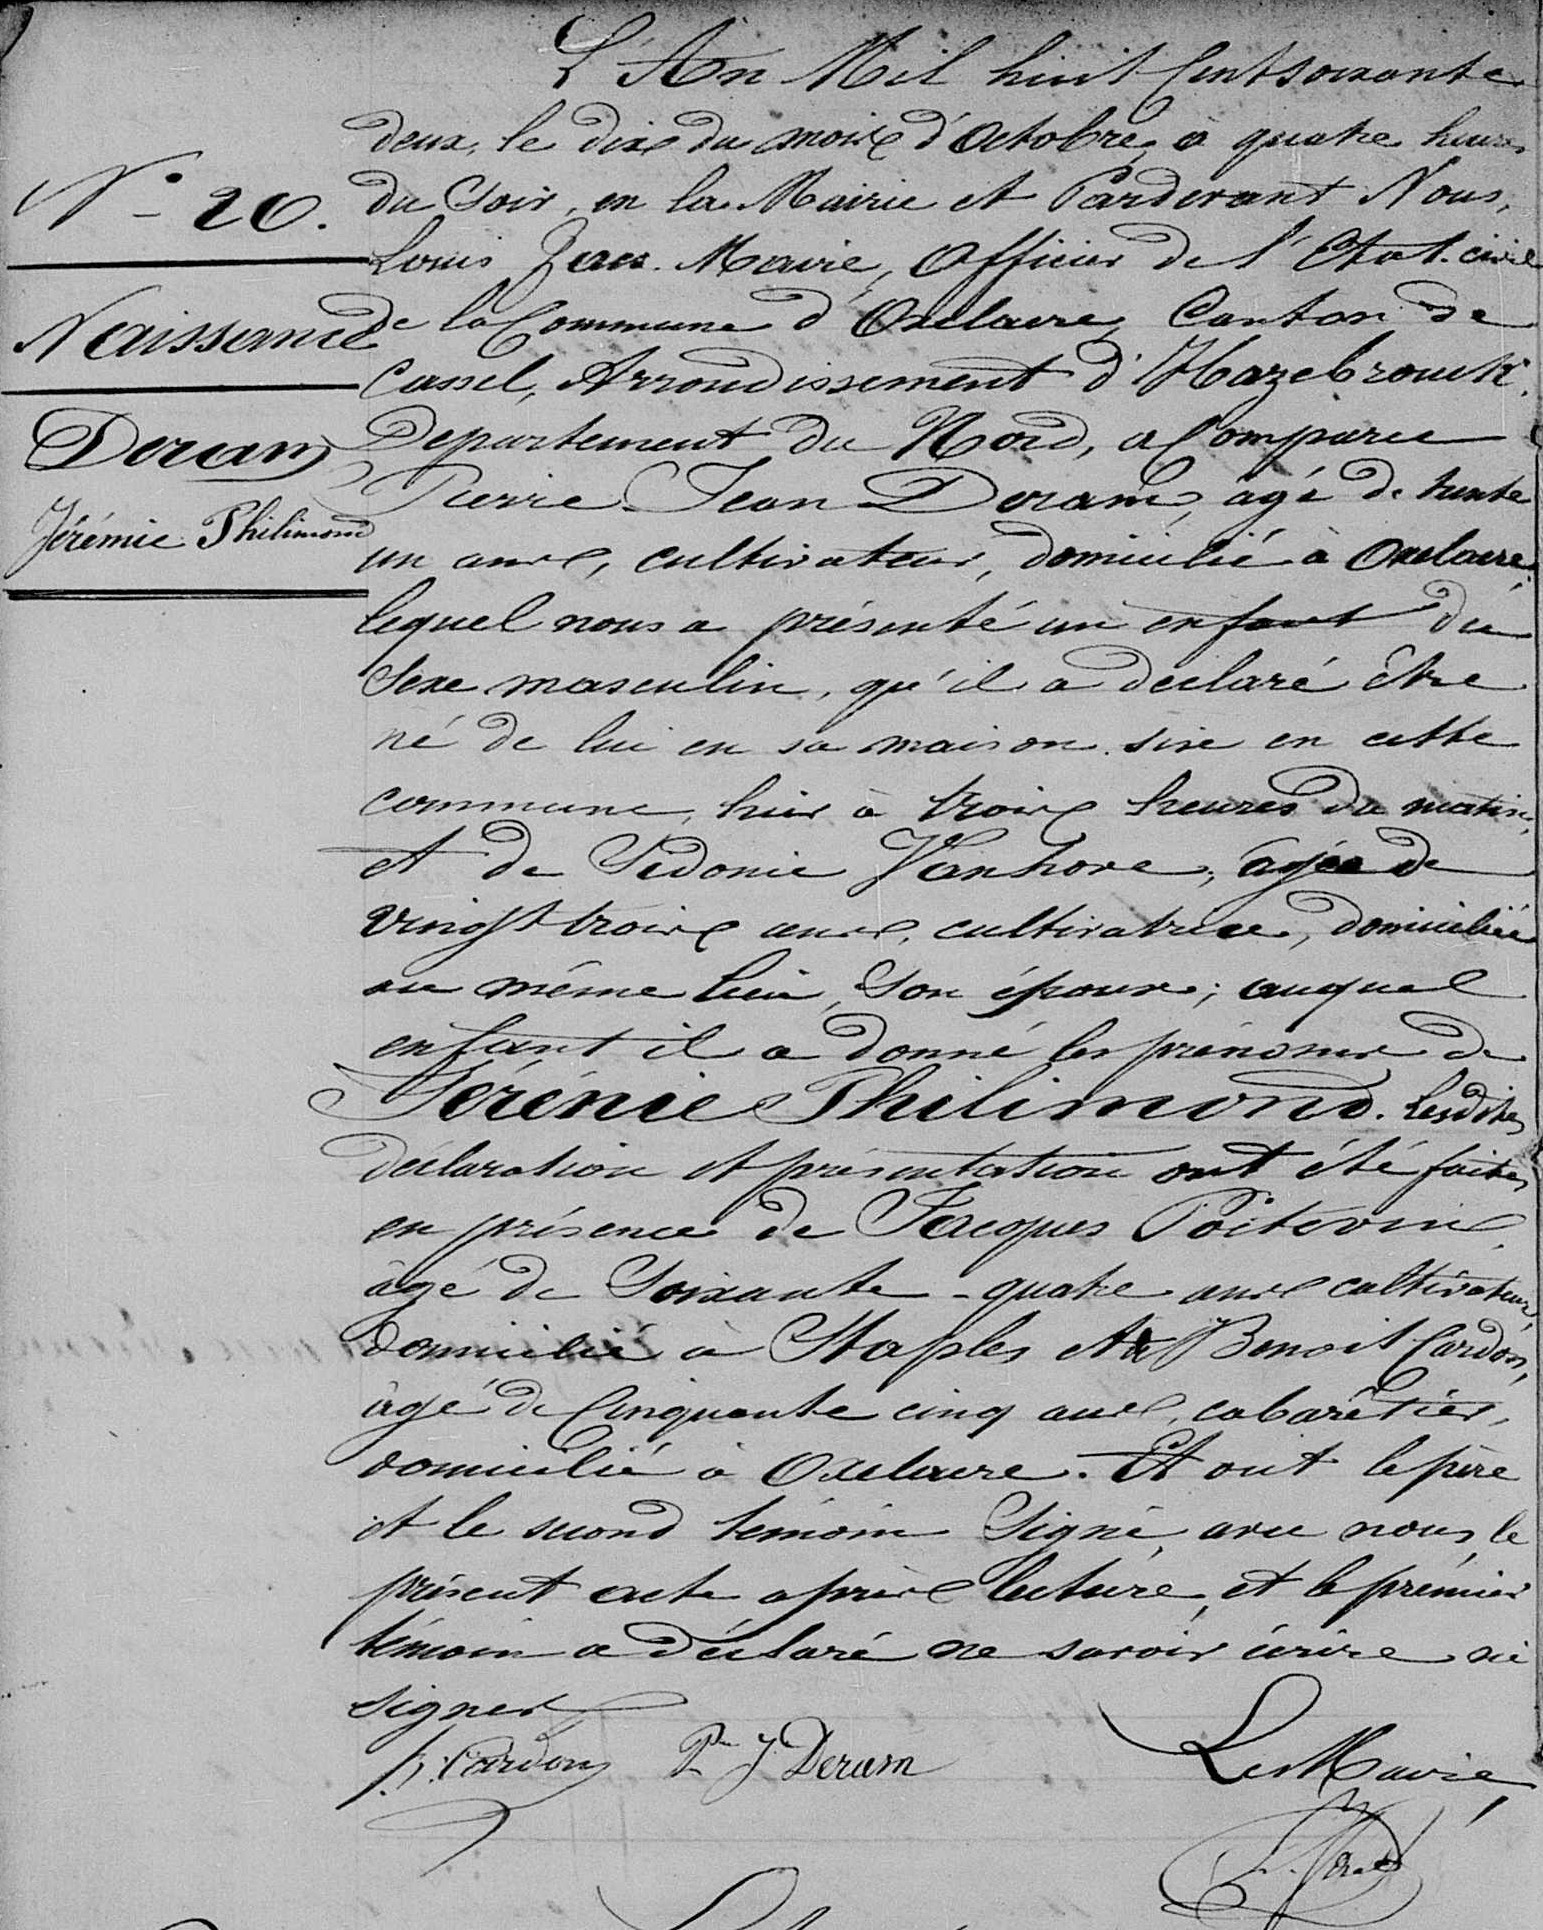 L'An Mil huit Cent soixante
deux, le dix du mois d'Octobre, à quatre heures
N° 20.
du soir, en la Mairie et Pardevant Nous,
Louis Maire, Officier de l'Etat-civil
Naissance
de la Commune d'Oxelaere, Canton de
Cassel, Arrondissement d'Hazebrouck,
Deram
Departement du Nord, a Comparu
Pierre Jean Deram, âgé de trente
Jérémie Philimond
un ans, cultivateur, domicilié à Oxelaere,
lequel nous a présenté un enfant du
sexe masculin, qu'il a déclaré être
né de lui en sa maison sise en cette
commune, hier à trois heures du matin,
et de Sidonie Vanhove, âgée de
vingt trois ans, cultivatrice, domiciliée
au même lieu, son épouse; auquel
enfant il a donné les prénoms de
Jérémie Philimond. Lesdites
déclaration et présentation ont été faites
en présence de Jacques Poitevin,
âgé de Soixante-quatre ans cultivateur,
domicilié à Staples et de Benoit Cardon,
âgé de Cinquante cinq ans, cabarêtier,
domicilié à Oxelaere. Et ont le père
et le second témoin Signé, avec nous, le
présent acte après lecture, et le prémier
témoin a déclaré ne savoir écrire ni
signer
B. Cardon P.re J Deram Le Maire,